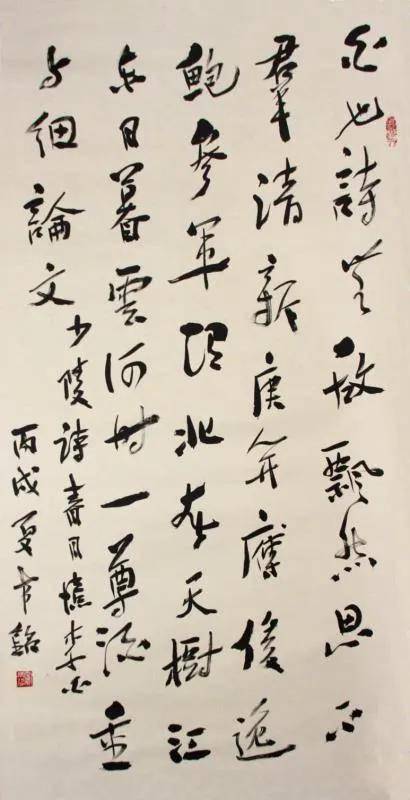 白也詩無敵飄然思不
群清新庾開府俊逸
鮑參軍渭北春天樹江
東日暮雲何時一尊酒重
与細論文 少陵詩春日憶李白
丙戌夏